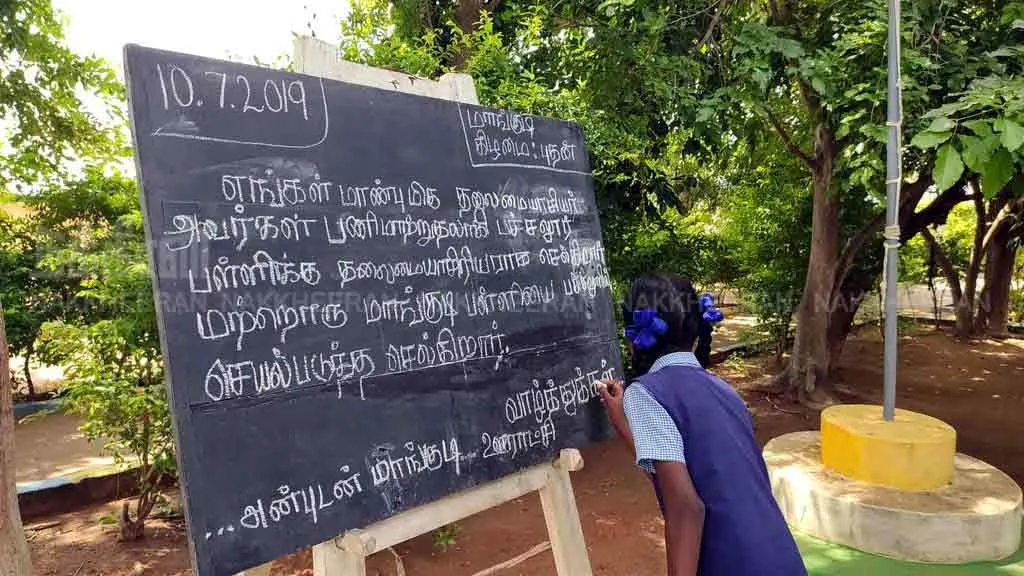 10.7.2019
மாங்குடி
கிழமை : புதன்
எங்கள் மாண்புமிகு தலைமையாசிரியர்
அவர்கள் பணிமாற்றுதலாகி பச்சலூர்
பள்ளிக்கு தலைமையாசிரியராக செல்கிறார்
மற்றொரு மாங்குடி பள்ளியை
செயல்படுத்த செல்கிறார்.
வாழ்த்துக்கள்
...அன்புடன் மாங்குடி... ஊராட்சி
NAKKHEERAN